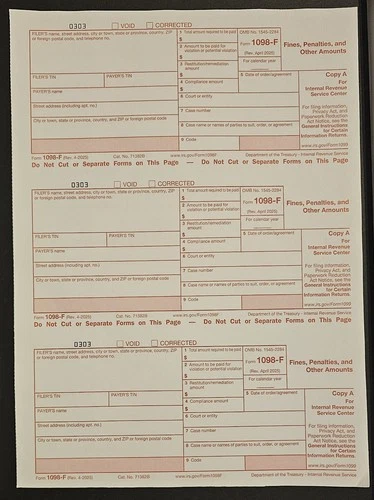 0303 VOID CORRECTED
FILER'S name, street address, city or town, state or province, country, ZIP
or foreign postal code, and telephone no.
1 Total amount required to be paid
$
2 Amount to be paid for
violation or potential violation
$
3 Restitution/remediation
amount
$
4 Compliance amount
$
OMB No. 1545-2284
Form 1098-F
(Rev. April 2025)
For calendar year
Fines, Penalties, and
Other Amounts
FILER'S TIN
PAYER'S TIN
5 Date of order/agreement
Copy A
For
Internal Revenue
Service Center
PAYER'S name
6 Court or entity
Street address (including apt. no.)
7 Case number
City or town, state or province, country, and ZIP or foreign postal code
8 Case name or names of parties to suit, order, or agreement
9 Code
For filing information,
Privacy Act, and
Paperwork Reduction
Act Notice, see the
General Instructions
for Certain
Information Returns.
www.irs.gov/Form1099
Form 1098-F (Rev. 4-2025) Cat. No. 71382B www.irs.gov/Form1098F Department of the Treasury - Internal Revenue Service
Do Not Cut or Separate Forms on This Page — Do Not Cut or Separate Forms on This Page
0303 VOID CORRECTED
FILER'S name, street address, city or town, state or province, country, ZIP
or foreign postal code, and telephone no.
1 Total amount required to be paid
$
2 Amount to be paid for
violation or potential violation
$
3 Restitution/remediation
amount
$
4 Compliance amount
$
OMB No. 1545-2284
Form 1098-F
(Rev. April 2025)
For calendar year
Fines, Penalties, and
Other Amounts
FILER'S TIN
PAYER'S TIN
5 Date of order/agreement
Copy A
For
Internal Revenue
Service Center
PAYER'S name
6 Court or entity
Street address (including apt. no.)
7 Case number
City or town, state or province, country, and ZIP or foreign postal code
8 Case name or names of parties to suit, order, or agreement
9 Code
For filing information,
Privacy Act, and
Paperwork Reduction
Act Notice, see the
General Instructions
for Certain
Information Returns.
www.irs.gov/Form1099
Form 1098-F (Rev. 4-2025) Cat. No. 71382B www.irs.gov/Form1098F Department of the Treasury - Internal Revenue Service
Do Not Cut or Separate Forms on This Page — Do Not Cut or Separate Forms on This Page
0303 VOID CORRECTED
FILER'S name, street address, city or town, state or province, country, ZIP
or foreign postal code, and telephone no.
1 Total amount required to be paid
$
2 Amount to be paid for
violation or potential violation
$
3 Restitution/remediation
amount
$
4 Compliance amount
$
OMB No. 1545-2284
Form 1098-F
(Rev. April 2025)
For calendar year
Fines, Penalties, and
Other Amounts
FILER'S TIN
PAYER'S TIN
5 Date of order/agreement
Copy A
For
Internal Revenue
Service Center
PAYER'S name
6 Court or entity
Street address (including apt. no.)
7 Case number
City or town, state or province, country, and ZIP or foreign postal code
8 Case name or names of parties to suit, order, or agreement
9 Code
For filing information,
Privacy Act, and
Paperwork Reduction
Act Notice, see the
General Instructions
for Certain
Information Returns.
www.irs.gov/Form1099
Form 1098-F (Rev. 4-2025) Cat. No. 71382B www.irs.gov/Form1098F Department of the Treasury - Internal Revenue Service